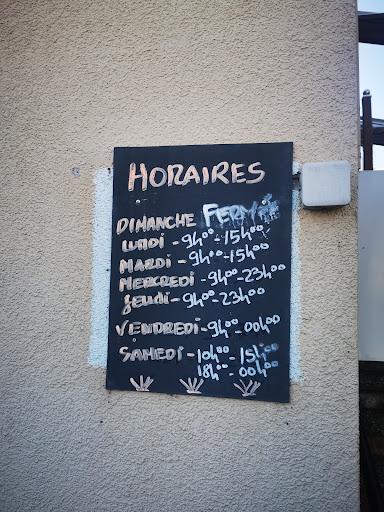 HORAIRES
DIMANCHE FERMÉ
LUNDI - 9h00 - 15h00
MARDI - 9h00 - 15h00
MERCREDI - 9h00 - 23h00
JEUDI - 9h00 - 23h00
VENDREDI - 9h00 - 00h00
SAMEDI - 10h00 - 15h00
18h00 - 00h00